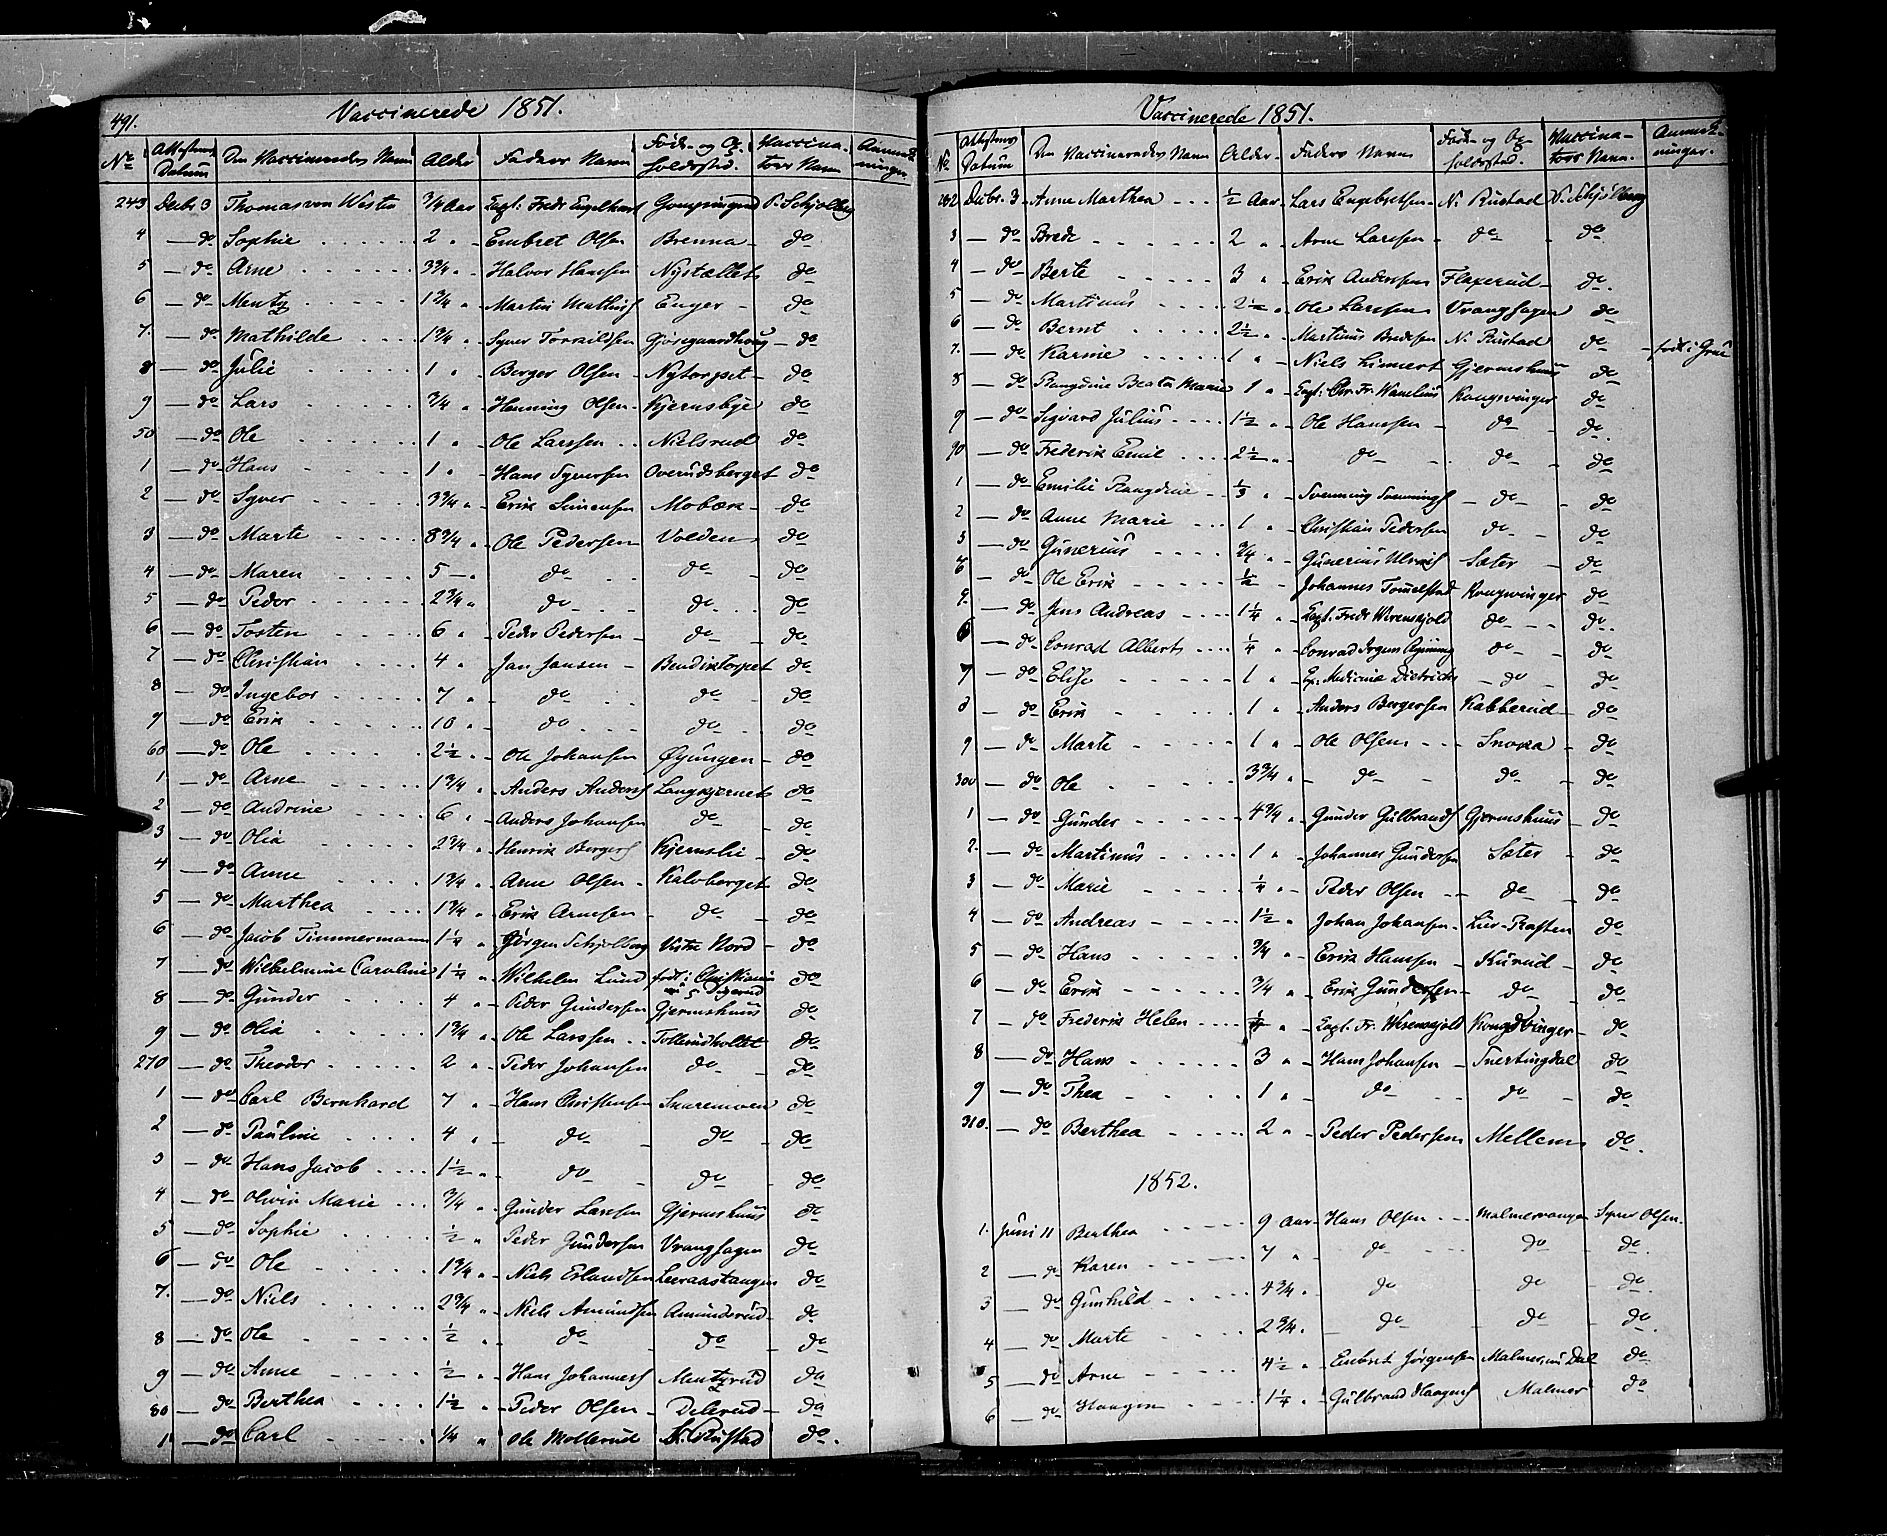 491.
Vaccinerede 1851.
No Attestens Datum Den Vaccineredes Navn Alder Faders Navn Føde- og Opholdssted. Vaccinators Navn Anmærkninger
243 Decbr 3 Thomas von Westen 3/4 Aar Capt: Fredr Engelhart P. Schjølberg
4 — do Sophie 2 " Embret Olsen Brenna do
5 — do Arne 3 3/4 " Halvor Hansen Nystællet do
6 — do Mentz 1 3/4 " Martin Mathis Enger do
7. — do Mathilde 1 3/4 " Syver Torkildsen Gjørgaardhoug do
8 — do Julie 1 " Berger Olsen Nytorpet do
9 — do Lars 3/4 " Henning Olsen Kjernsbye do
50 — do Ole 1 " Ole Larssen Nielsrud do
1 — do Hans 1 " Hans Syversen Overudsberget do
2 — do Syver 3 3/4 " Erik Simensen Mobæk do
3 — do Marte 8 3/4 " Ole Pedersen Volden do
4 — do Maren 5 — " do do do
5 — do Peder 2 3/4 " do do do
6 — do Tosten 6 " Peder Pedersen do do
7 — do Christian 4 " Jan Jansen Bendiktorpet do
8 — do Ingebor 7 " do do do
9 — do Erik 10 " do do do
60 — do Ole 2 1/2 " Ole Johansen Øyungen do
1 — do Arne 1 3/4 " Anders Anders Langkjernet do
2 — do Andrine 6 " Anders Johansen do do
3 — do Olia 2 3/4 " Henrik Bergers Kjernslie do
4 — do Anne 1 3/4 " Arne Olsen Kalvberget do
5 — do Marthea 1 3/4 " Erik Arnesen do do
6 — do Jacob Timmermann 1 1/4 " Jørgen Schjølberg Vestre Nord do
7 — do Wilhelmine Caroline 1 1/4 " Wilhelm Lund født i Christiania do
8 — do Gunder 4 " Peder Gundersen Gjermshuus do
9 — do Olia 1 3/4 " Ole Larssen Tollerudholtet do
270 — do Theodor 2 " Peder Johansen do do
1 — do Carl Bernhard 7 " Hans Christensen Snaremoen do
2 — do Pauline 4 " do do do
3 — do Hans Jacob 1 1/2 " do do do
4 — do Olivia Marie 3/4 " Gunder Larssen Gjermshuus do
5 — do Sophie 1/2 " Peder Gundersen Vrangsagen do
6 — do Ole 1 3/4 " Niels Erlandsen Leeraastangen do
7. — do Niels 2 3/4 " Niels Amundsen Amundsrud do
8 — do Ole 1/2 " do do do
9 — do Anne 1/2 " Hans Johannes Mentzrud do
80 — do Berthea 1 1/2 " Peder Olsen Delerud do
1 — do Carl 1/4 " Ole Mollerud Rustad do.
Vaccinerede 1851.
No Attestens Datum Den Vaccineredes Navn Alder Faders Navn Føde- og Opholdssted. Vaccinators Navn. Anmærkninger.
282 Decbr. 3 Anne Marthea 1/2 Aar Lars Engebretsen N. Rustad P. Schjølberg
3 — do Brede 2 " Arne Larssen do do
4 — do Berte 3 " Erik Andersen Flaxerud do.
5 — do Martinus 2 1/2 " Ole Larssen Vrangsagen do
6 — do Bernt 2 1/2 " Martinus Bredesen N. Rustad do
7. — do Karine 1 " Niels Linnert Gjermshuus do født i Grue
8 — do Rangdine Beata Marie 1 " Capt: Chr. Fr. Wamelius Kongsvinger do
9 — do Sigvard Julius 1 1/2 " Ole Hanssen do do.
90 — do Frederik Emil 2 1/2 " do do do
1 — do Emilie Rangdine 1/3 " Svenning Svennings do do
2 — do Anne Marie 1 " Christian Pedersen do do
3 — do Gunerius 3/4 " Gunerius Ulriks Sæter do
— do Ole Erik 1/2 " Johannes Tommelstad Kongsvinger do
— do Jens Andreas 1 1/4 " Capt. Fredr Werenskjold do do.
6 — do Conrad Albert 1/4 " Conrad do do
7 — do Elise 1 " Dietrichs do do
8 — do Erik 1 " Anders Bergersen Kabberud do
9 — do Marte 1 " Ole Olsen Snoka do
300 — do Ole 3 3/4 " do do do
1 — do Gunder 4 3/4 " Gunder Gulbrands Gjermshuus do
2. — do Martinus 1 " Johannes Gundersen Sæter do
3 — do Marie 1/4 " Peder Olsen do do
4 — do Andreas 1 1/2 " Johan Johansen Lier-Raften do
5 — do Hans 3/4 " Erik Hansen Kurud do
6 — do Erik 3/4 " Erik Gundersen do do
7 — do Frederik Helen " Capt. Fr. Werenskjold Kongsvinger do
8 — do Hans 3 " Hans Johansen Snertingdal do
9 — do Thea 1 " do do do
310. — do Berthea 2 " Peder Pedersen Mellem do.
1852.
1. Juni 11 Berthea 9 Aar Hans Olsen Malmervangen Syver Olsen.
2 — do Karen 7 " do do do.
3 — do Gunhild 4 3/4 " do do do
4 — do Marte 2 3/4 " do do do.
5 — do Arne 4 1/2 " Embret Jørgensen Malmer, do
6 — do Haagen 1 1/4 " Gulbrand Haagens Malmer do